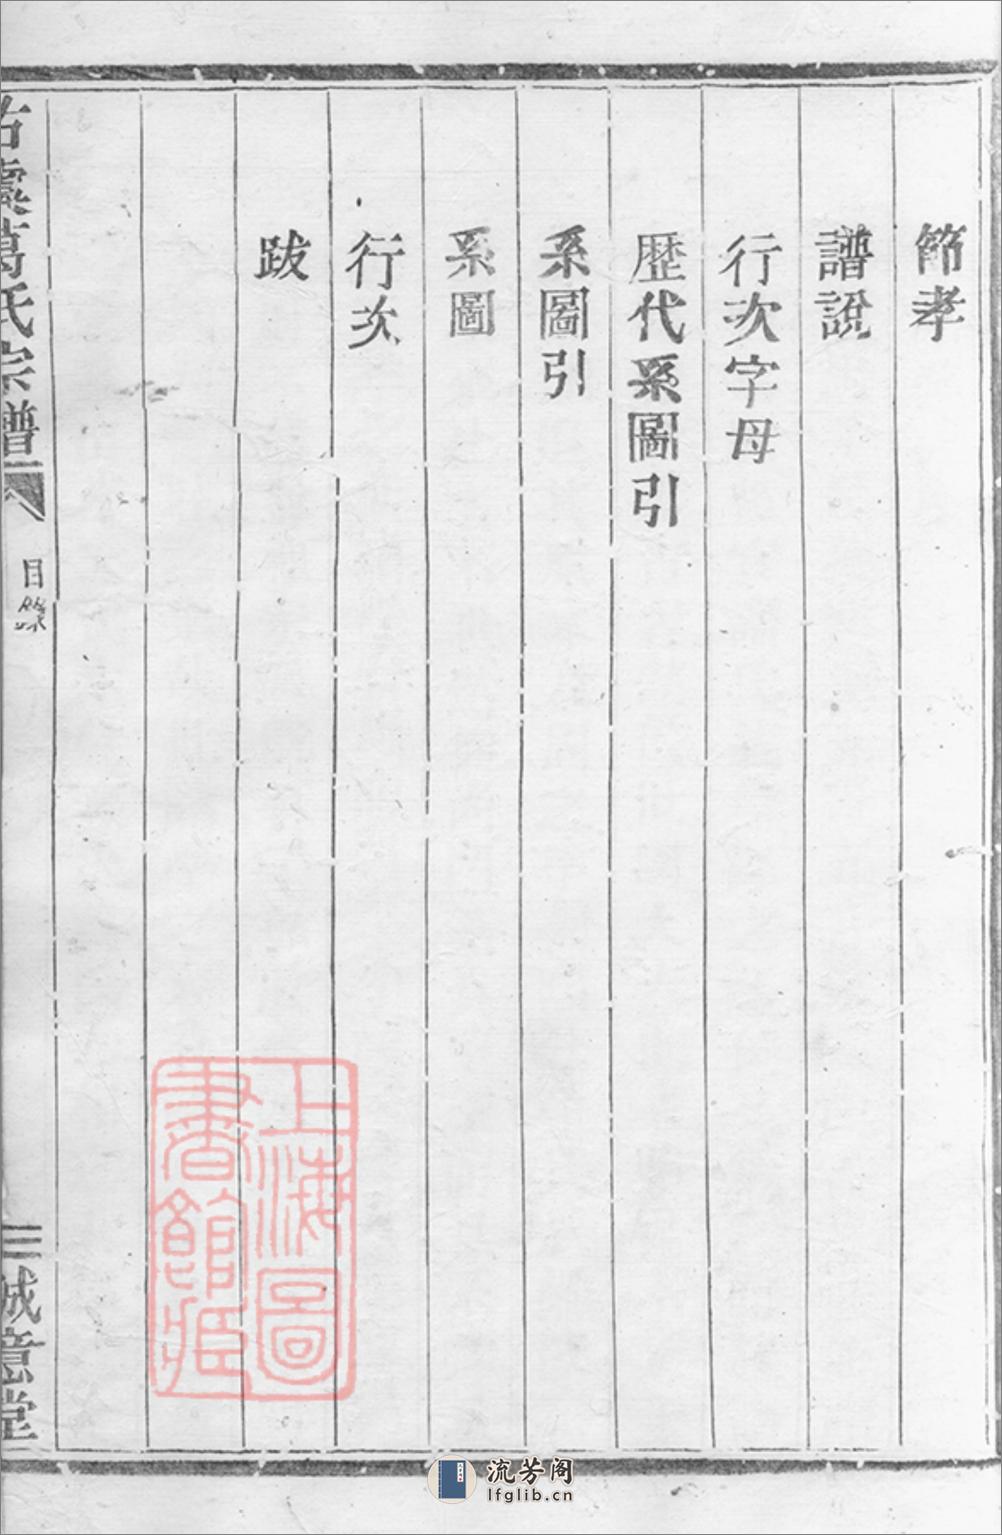 節孝
譜說
行次字母
歷代系圖引
系圖引
系圖
行次
跋
古虞葛氏宗譜
目錄
二
誠意堂
上海圖
書館藏
流芳阁
lfglib.cn